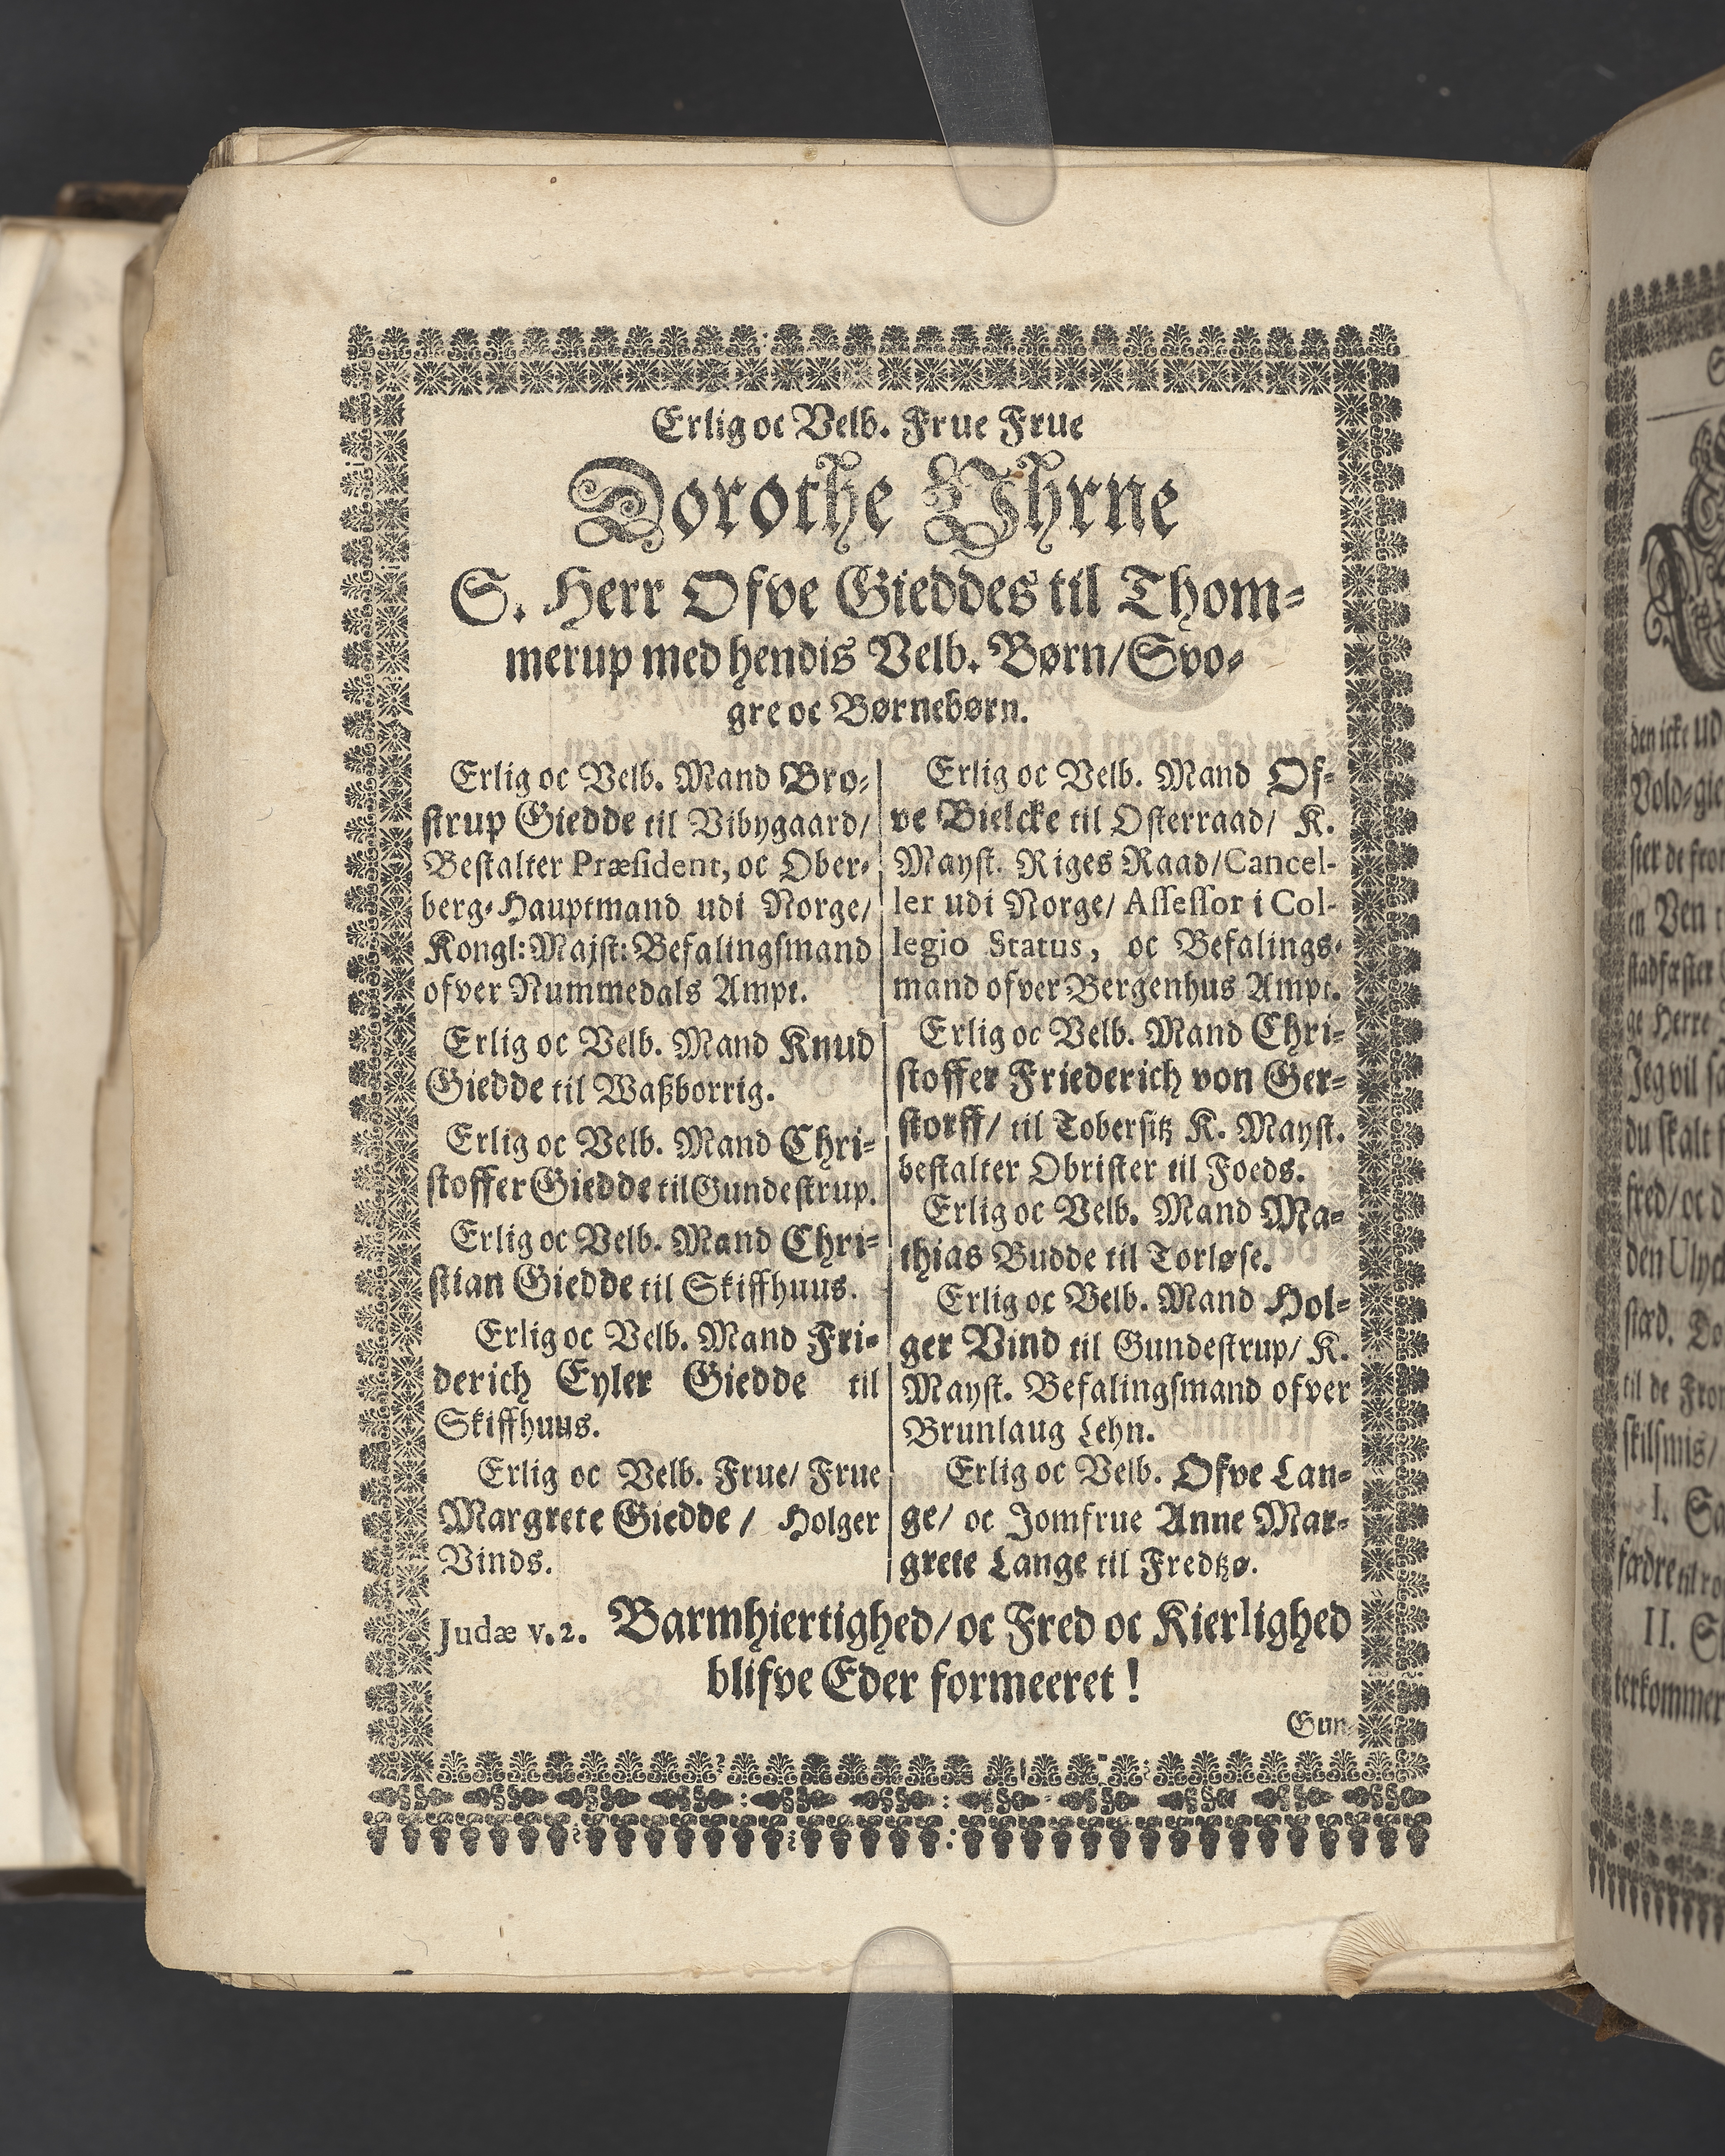 Erlig oc Velb. Frue Frue
Dorothe Vhrne
S. Herr Ofve Gieddes til Thom=
merup med hendis Velb. Børn/Svo=
gre oc Børnebørn.
Erlig oc Velb. Mand Bro=
strup Giedde til Vibygaard/
Bestalter Præsident, oc Ober=
berg=Hauptmand udi Norge/
Kongl: Majst: Befalingsmand
ofver Nummedals Ampt.
Erlig oc Velb. Mand Knud
Giedde til Waßborrig.
Erlig oc Velb. Mand Chri=
stoffer Giedde til Gundestrup.
Erlig oc Velb. Mand Chri=
stian Giedde til Skiffhuus.
Erlig oc Velb. Mand Fri=
derich Eyler Giedde til
Skiffhuus.
Erlig oc Velb. Frue/ Frue
Margrete Giedde / Holger
Vinds.
Erlig oc Velb. Mand Of=
ve Bielcke til Osterraad/ K.
Mayst. Riges Raad/Cancel-
ler udi Norge/ Assessor i Col-
legio Status, oc Befalings=
mand ofver Bergenhus Ampt.
Erlig oc Velb. Mand Chri=
stoffer Friederich von Ger=
storff/ til Tobersitz K. Mayst.
bestalter Obrister til Foeds.
Erlig oc Velb. Mand Ma=
thias Budde til Torløse.
Erlig oc Velb. Mand Hol=
ger Vind til Gundestrup/ K.
Mayst. Befalingsmand ofver
Brunlaug Lehn.
Erlig oc Velb. Ofve Lan=
ge/ oc Jomfrue Anne Mar=
grete Lange til Fredtzø.
Judæ v. 2. Barmhiertighed/ oc Fred oc Kierlighed
blifve Eder formeeret !
Gun=
den icke ud
Vold=gie
ster de fro
en Ven
stadfæster
ge Herre
Jeg vil
du skalt
fred/ oc d
den Ulyc
stæd. Do
til de Fro
skilsmis/
I. Sa
fædre
II. S
terkommer